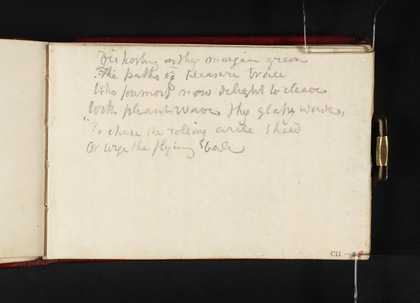 Disporting on thy margin green
The paths of pleasure trace
Who foremost now delight to cleave
With pliant wave thy glassy wave,
"To chase the rolling circle Speed
Or urge the flying Ball
CII